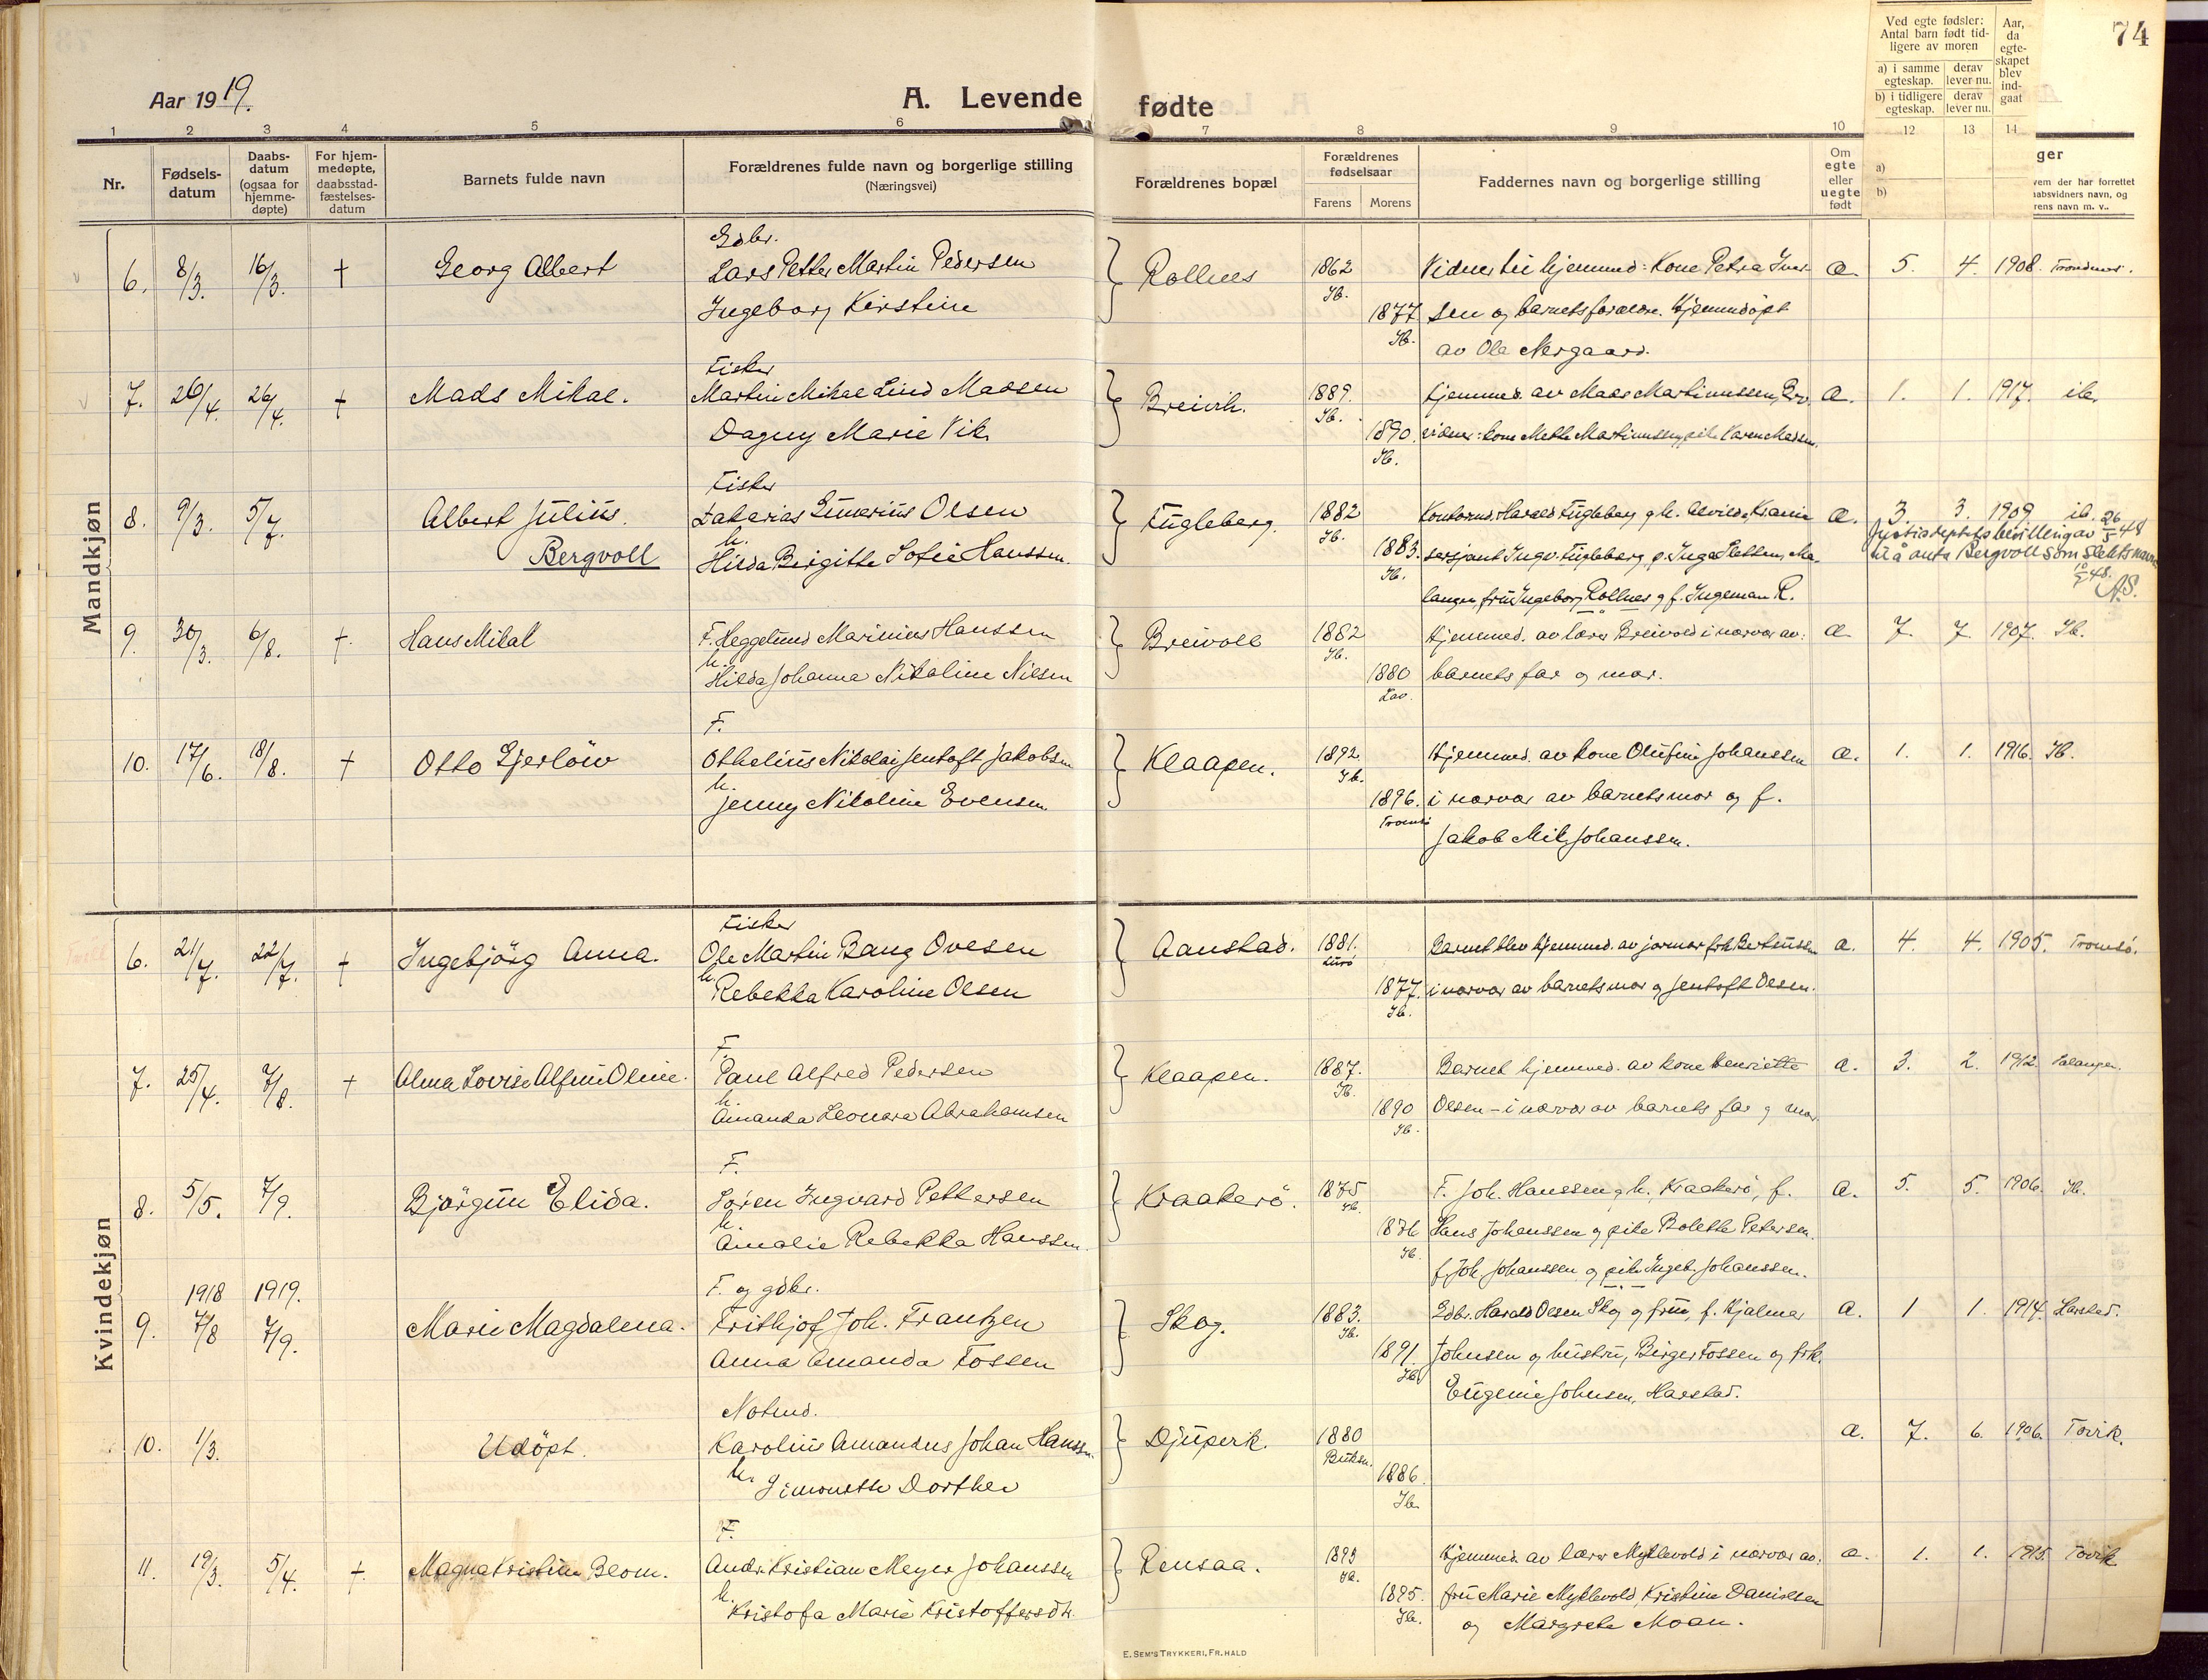 74
Aar 1919.
A. Levende fødte
Ved egte fødsler:
Antal barn født tid-
ligere av moren
a) i samme egteskap.
derav lever nu.
b) i tidligere egteskap.
derav lever nu.
Aar, da egte-skapet blev ind-gaat
1 2 3 4 5 6 7 8 9 10 12 13 14
Nr.
Fødsels-datum
Daabs-datum (ogsaa for hjemme-døpte)
For hjem-medøpte, daabsstad-fæstelses-datum
Barnets fulde navn
Forældrenes fulde navn og borgerlige stilling
(Næringsvei)
Forældrenes bopæl
Forældrenes fødselsaar
Farens Morens
Faddernes navn og borgerlige stilling
Om egte eller uegte født
a)
b)
ger
vem der har forrettet
absvidners navn, og
rens navn m. v..
Mandkjøn
Gdbr.
6. 8/3. 16/3. † Georg Albert Lars Petter Martin Pedersen Rollnes 1862 Vidner til hjemmed: Kone Petra Iver- a. 5. 4. 1908. Trondenes.
Ib.
Ingeborg Kirstine 1877 sen og barnets forældre. Hjemmedöpt
Ib. av Ole Nergaard.
Fisker
7. 26/4. 26/4. † Mads Mikal. Martin Mikal Lind Madsen Breivik. 1889. Hjemmed. av Mads Martinussen, Brv. a. 1. 1. 1917. ib.
Ib.
Dagny Marie Vik 1890. vidner: kone Methe Martinussen, pike Karen Madsen.
Ib.
Fisker
8. 9/3. 5/7. Albert Julius. Zakarias Emerius Olsen Fugleberg. 1882 Harald Fugleberg g h. Alvilde, a. 3 3. 1909 ib. 26/5 48
Ib. Justisdeptets bevilling av
Bergvoll h. Hilda Birgitte Sofie Hanssen. 1883. sersjant Ingv. Fugleberg, p. Inga Slettem, Ma- til å anta Bergvoll som slektsnavn
Ib. 48. A.S.
langen, fru Ingeborg Rollnes g f. Ingeman R.
9. 30/3. 6/8. † Hans Mikal F. Heggelund Marinius Hanssen Breivoll 1882 Hjemmed. av lærer Breivold i nærvær av: a. 7. 7. 1907. Ib.
Ib.
h. Hilda Johanna Nikoline Nilsen 1880 barnets far og mor.
Lav.
F.
10. 17/6. 18/8. † Otto Gjerlöw Othelius Nikolai Jentoft Jakobsen Klaapen. 1892. Hjemmed. av kone Olufine Johanssen a. 1. 1. 1916. Ib.
Ib.
h. Jenny Nikoline Evensen 1896. i nærvær av barnets mor og f.
Tromsö
Jakob Mik. Johanssen.
Kvindekjøn
Fisker
6. 21/7. 22/7. † Ingebjörg Anna. Ole Martin Bang Ovesen Aanstad. 1881. Barnet blev hjemmed. av jormor frk. Berteussen a. 4. 4. 1905. Tromsö.
Lurö
h. Rebekka Karoline Olsen 1877. i nærvær av barnets mor og Jentoft Olsen.
Ib.
F.
7. 25/4. 7/8. † Alma Lovise Alfine Oline. Paul Alfred Pedersen Klaapen. 1887. Barnet hjemmed. av kone Henriette a. 3. 2. 1912. Salangen.
Ib.
h. Amanda Leonora Abrahamsen 1890 Olsen – i nærvær av barnets far g mor.
Ib.
F.
8. 5/5. 7/9. Bjørgun Elida. Sören Ingvard Pettersen Kraakerö. 1875 F. Joh. Hanssen g h. Kraakerö, f. a. 5. 5. 1906. Ib.
Ib.
h. Amalie Rebekka Hanssen. 1876 Hans Johanssen og pike Bolette Petersen.
Ib.
f. Joh. Johanssen og pike Ingeb. Johanssen.
1918 1919. F. og gdbr.
9. 7/8 7/9. Marie Magdalena. Frithjof Joh. Frantzen Skog. 1883. Gdbr. Harald Olsen Skog g fru, f. Hjalmar a. 1 1. 1914. Harstad.
Ib.
Anna Amanda Fossen 1891. Johnsen og hustru, Birger Fossen og frk.
Ib.
Eugenie Johnsen, Harstad.
Notmd.
10. 1/3. Udöpt. Karolius Amandus Johan Hanssen. Djupvik. 1880 a. 7. 6. 1906. Tovik.
Buksn.
h. Simonette Dorthea 1886.
Ib.
F.
11. 19/3. 5/4. † Magna Kristine Blom. Andr. Kristian Meyer Johanssen Rensaa. 1893 Hjemmed. av lærer Myklevold i nærvær av: a. 1. 1. 1915. Tovik
Ib.
h. Kristofa Marie Kristoffersdtr. 1895. fru Marie Myklevold, Kristine Danielsen
Ib.
og Margrete Moan.
E. SEM'S TRYKKERI, FR.HALD